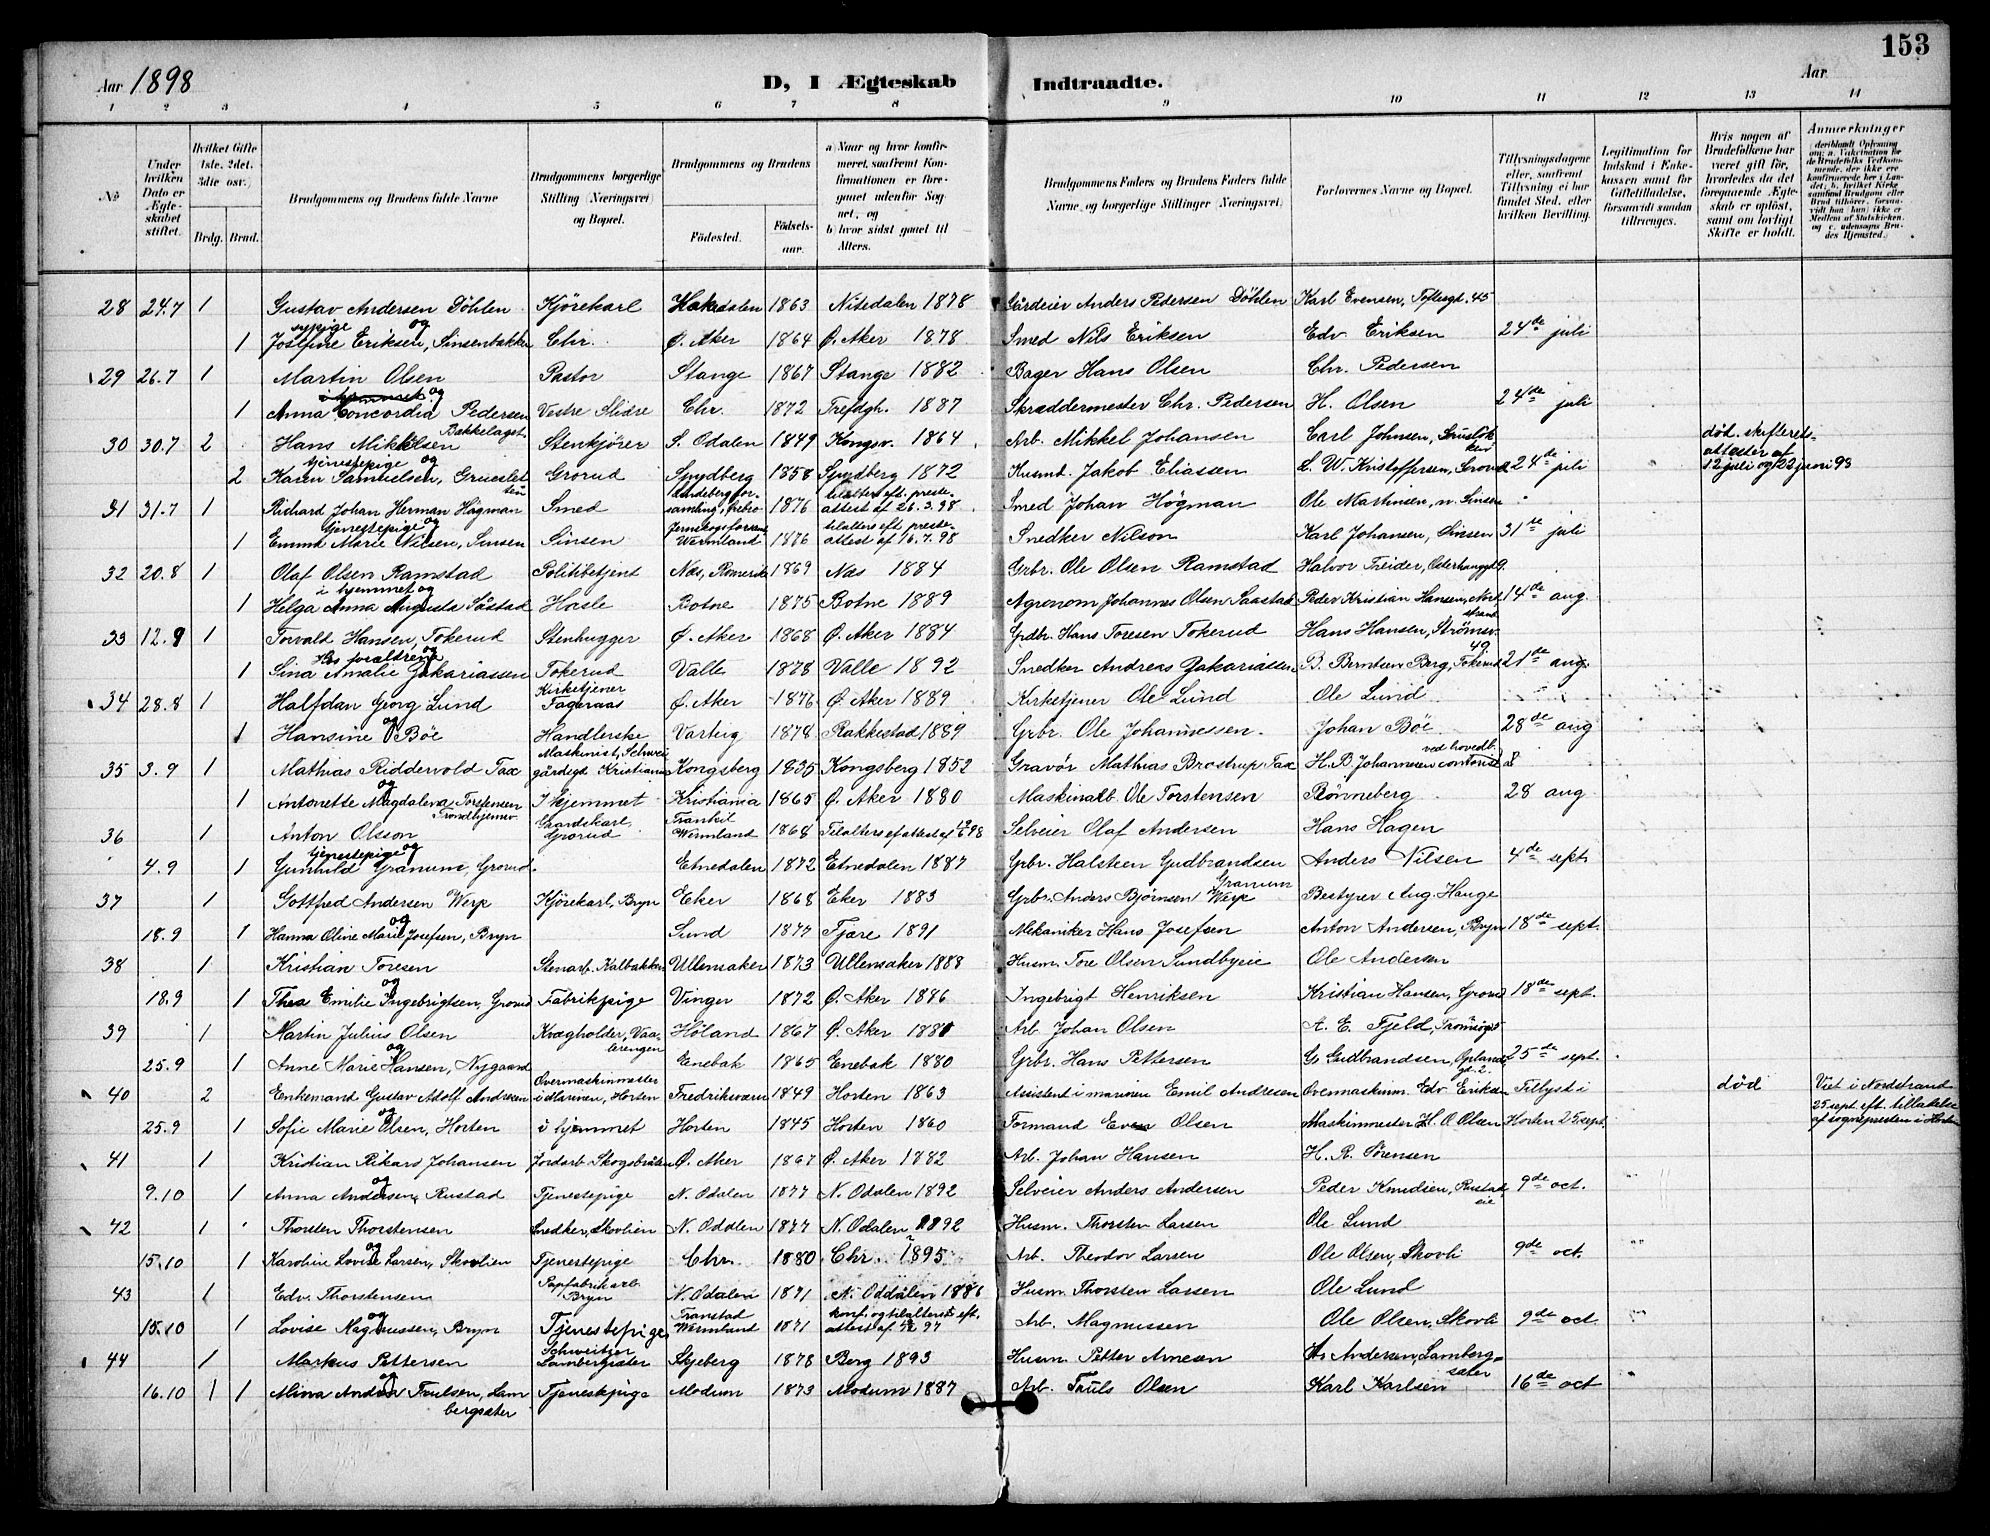 153
Aar 1898 D, I Ægteskab Indtraadte. Aar
1 2 3 4 5 6 7 8 9 10 11 12 13 14
№
Under hvilken Dato er Ægteskabet stiftet.
Hvilket Gifte (1ste, 2det, 3die osv.)
Brdg. Brud.
Brudgommens og Brudens fulde Navne
Brudgommens borgerlige Stilling (Næringsvei) og Bopæl.
Brudgommens og Brudens
Fødested.
Fødselsaar.
a) Naar og hvor konfirmeret, saafremt Konfirmationen er foregaaet udenfor Sognet, og b) hvor sidst gaaet til Alters.
Brudgommens Faders og Brudens Faders fulde Navne, og borgerlige Stillinger (Næringsvei)
Forlovernes Navne og Bopæl.
Tillysningsdagene eller, saafremt Tillysning ei har fundet Sted, efter hvilken Bevilling.
Legitimation for Indskud i Enkekassen samt for Giftetilladelse, forsaavidt saadan tiltrænges.
Hvis nogen af Brudefolkene har været gift før, hvorledes da det foregaaende Ægteskab er opløst, samt om lovligt Skifte er holdt.
Anmerkninger
28 24.7 1 Gustav Andersen Döhlen Kjörekarl Hakedalen 1863 Nitedalen 1878 Gårdeier Anders Pedersen Döhlen Karl Evensen, Toftesgd. 45
sypige og
1 Josefine Eriksen, Sinsenbakken Chr. Ø. Aker 1864 Ø. Aker 1878 Smed Nils Eriksen Edv Eriksen 24de juli
29 26.7 1 Martin Olsen Pastor Stange 1867 Stange 1882 Bager Hans Olsen Chr. Pedersen
i hjemmet og
1 Anna Concordia Pedersen Vestre Slidre Chr. 1872 Trefdgh. 1887 Skræddermester Chr. Pedersen H. Olsen 24de juli
Bækkelaget
30 30.7 2 Hans Mikkelsen Stenkjører S. Odalen 1849 Kongsv. 1864 Arb. Mikkel Johansen Carl Johnsen, død. skifterets-
tjenestepige og
2 Karen Samuelsen, Grorud Spydberg 1858 Spydberg 1872 Husmd. Jakob Eliassen L. W. Kristoffersen, Grorud 24de juli attester af 12 juli og 22 juni 93
31 31.7 1 Richard Johan Herman Högman Smed 1876 tilalters eft. presteattest af 26.3.98 Smed Johan Högman Ole Martinsen, n. Sinsen
tjenestepige og
1 Emma Marie Nilsen, Sinsen Sinsen Wermland 1876 tilalters eft. presteattest af 16.7.98 Snedker Nilson Karl Johansen, Sinsen 31te juli
32 20.8 1 Olaf Olsen Ramstad Politibetjent Næs, Romerike 1869 Næs 1884 Grbr. Ole Olsen Ramstad Halvor Treider, Osterhausgd 9.
i hjemmet og
1 Helga Anna Augusta Såstad Hasle Botne 1875 Botne 1889 Agronom Johannes Olsen Saastad Peder Kristian Hansen, Nordstrand 14de aug.
33 12.9 1 Torvald Hansen, Tokerud Stenhugger Ø. Aker 1868 Ø. Aker 1884 Grdbr. Hans Toresen Tokerud Hans Hansen, Strömsv. 49
Hos forældrene og
1 Sina Amalie Zakariassen Tokerud Valle 1878 Valle 1892 Snedker Andreas Zakariassen B. Berntsen Berg, Tokerud 21de aug.
34 28.8 1 Halfdan Georg Lund Kirketjener Fageraas Ø. Aker 1876 Ø. Aker 1889 Kirketjener Ole Lund Ole Lund
og
1 Hansine Böe Handlerske Varteig 1878 Rakkestad 1889 Grbr. Ole Johannessen Johan Böe 28de aug
35 3.9 1 Mathias Riddervold Fax Maskinist, Schweigårdsgd Kristiania Kongsberg 1835 Kongsberg 1852 Gravör Mathias Brostrup Fax H. B. Johannesen contorist ved hovedb.
og
1 Antonette Magdalena Torstensen I hjemmet Kristiania 1865 Ø. Aker 1880 Maskinarb. Ole Torstensen Rönneberg 28 aug
Trondhjemsv.
36 1 Anton Olsson Gaardskarl, Grorud Wermland 1868 Tilalters ef. attest af 98 Selveier Olaf Andersen Hans Hagen
tjenestepige og
4.9 1 Gunhild Granum, Grorud. Etnedalen 1872 Etnedalen 1887 Grbr. Halsten Gudbrandsen Granum Anders Nilsen 4de sept.
37 1 Gottfred Andersen Werp Kjørekarl, Bryn Eker 1868 Eker 1883 Grbr. Anders Björnsen Werp Bestyrer Aug. Hauge
og
18.9 1 Hanna Oline Marie Josefsen, Bryn Lund 1877 Tjære 1891 Mekaniker Hans Josefsen Anton Andersen, Bryn 18de sept.
38 1 Kristian Toresen Stenarb. Kalbakken Ullensaker 1873 Ullensaker 1888 Husm. Tore Olsen Sundbyeie Ole Andersen
og
18.9 1 Thea Emilie Ingebrigtsen, Grorud Fabrikpige Vinger 1872 Ø. Aker 1886 Ingebrigt Henriksen Kristian Hansen, Grorud 18de sept.
39 1 Martin Julius Olsen Kvægholder, Vaalerengen Höland 1867 Ø. Aker 1881 Arb Johan Olsen A. E. Fjeld, Tromsøgd 5
og
25.9 1 Anne Marie Hansen, Nygaard Enebak 1865 Enebak 1880 Grbr. Hans Pettersen G. Gudbrandsen, Oplandsgd. 2 25de sept.
40 2 Enkemand Gustav Adolf Andresen Overmaskinmester i Marinen, Horten Fredriksværn 1849 Horten 1863 Assistent i marinen Emil Andresen Overmaskinm. Edv Eriksen Tillyst i død Viet i Nordstrand
og
25.9 1 Sofie Marie Olsen, Horten i hjemmet Horten 1845 Horten 1860 Formand Even Olsen Maskinmester H. O. Olsen Horten 25 sept. 25 sept. eft. tilladelse af sognepresten i Horten
41 1 Kristian Rikard Johansen Jordarb. Skogsbråten Ø. Aker 1867 Ø. Aker 1882 Arb. Johan Hansen H. R. Sørensen
og
9.10 1 Anna Andersen, Rustad Tjenestepige N. Odalen 1877 N. Odalen 1892 Selveier Anders Andersen Peder Knudsen, Rustadeie 9de oct.
42 1 Thorsten Thorstensen Snedker, Skovlien N. Odalen 1877 N. Odalen 1892 Husm. Thorsten Larsen Ole Lund
og
15.10 1 Karoline Lovise Larsen, Skovlien Tjenestepige Chr. 1880 Chr. 1895 Arb. Theodor Larsen Ole Olsen, Skovli 9de oct.
43 1 Edv. Thorstensen Papfabrikarb. Bryn N. Odalen 1871 N. Oddalen 1886 Husm. Thorsten Larsen Ole Lund
og
15.10 1 Lovise Magnussen, Bryn Tjenestepige Wermland 1871 konf. og tilalters eft. attest af 97 Arb. Magnussen Ole Olsen, Skovli 9de oct
44 1 Markus Pettersen Schweitser Lambergsæter Skjeberg 1878 Berg 1893 Husm. Petter Arnesen A. Andersen, Lambergsæter
og
16.10 1 1 Mina Andrea Trulsen, Lambergsæter Tjenestepige Modum 1873 Modum 1887 Arb. Truls Olsen Karl Karlsen 16de oct